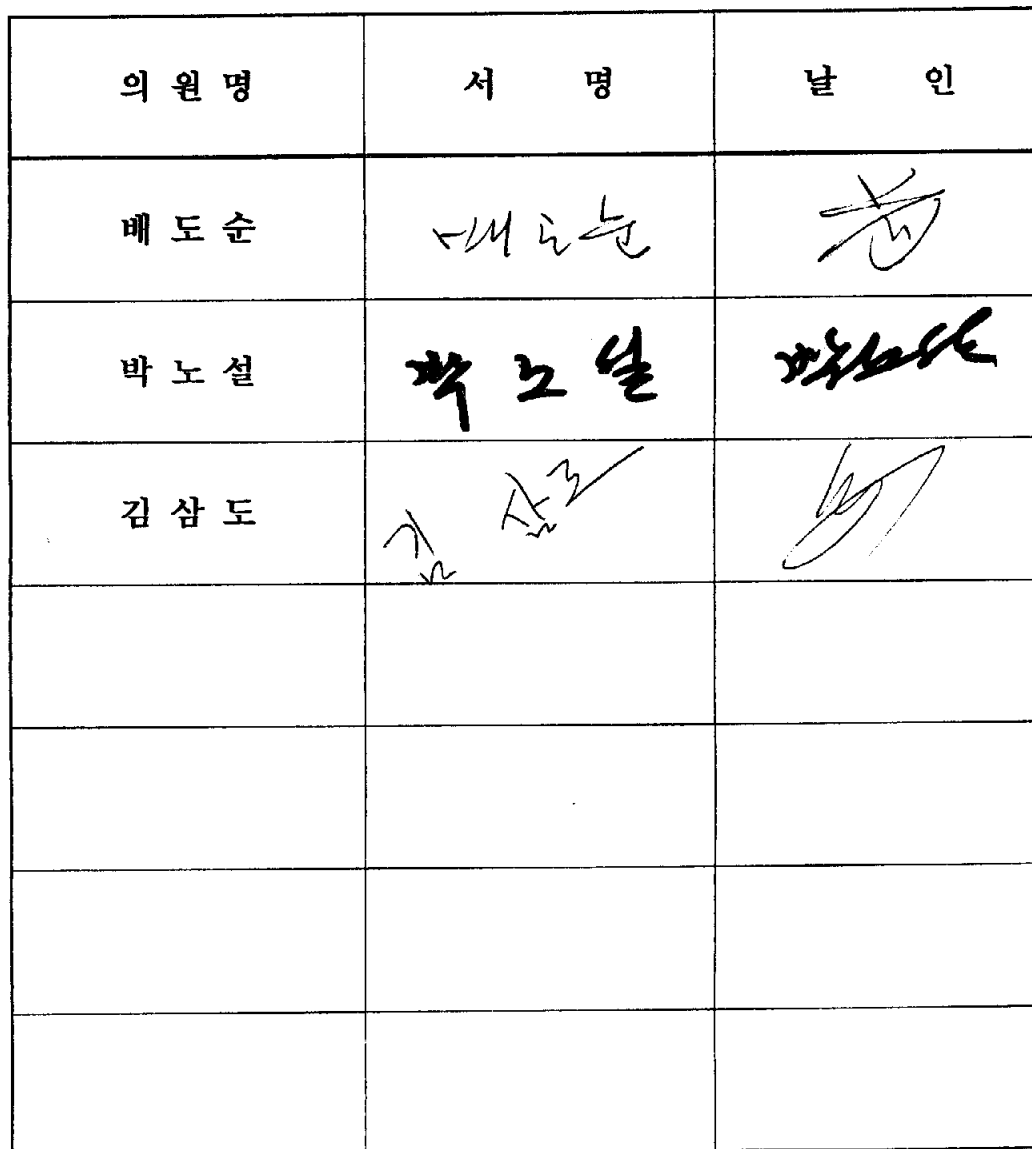 의원명 서 명 날 인
배도순 배도순
박노설 박노설 박노설
김삼도 김삼도